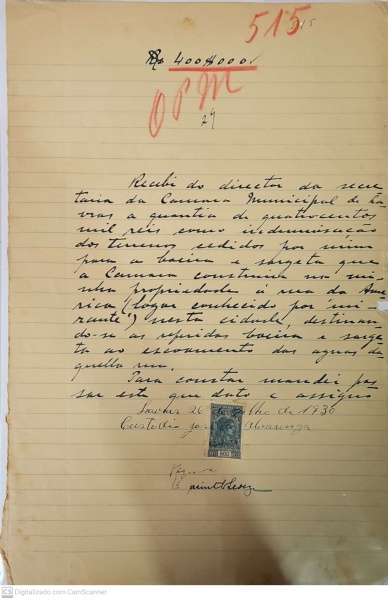 515
515
Rs 400$000
OPM
24
Recebi do director da secre
taria da Camara Municipal de La
vras a quantia de quatrocentos
mil reis como indemnisação
dos terrenos cedidos por mim
para a boeira e sargeta que
a Camara construiu na mi
nha propriedade á rua da Ame
rica (logar conhecido por "mi
rante") nesta cidade, destinan
do-se as referidas boeira e sarge
ta ao escoamento das aguas da
quella rua.
Para constar mandei pas
sar este que dato e assigno
Lavras 26 de Julho de 1930
Custodio Alvarenga
CS Digitalizado com CamScanner